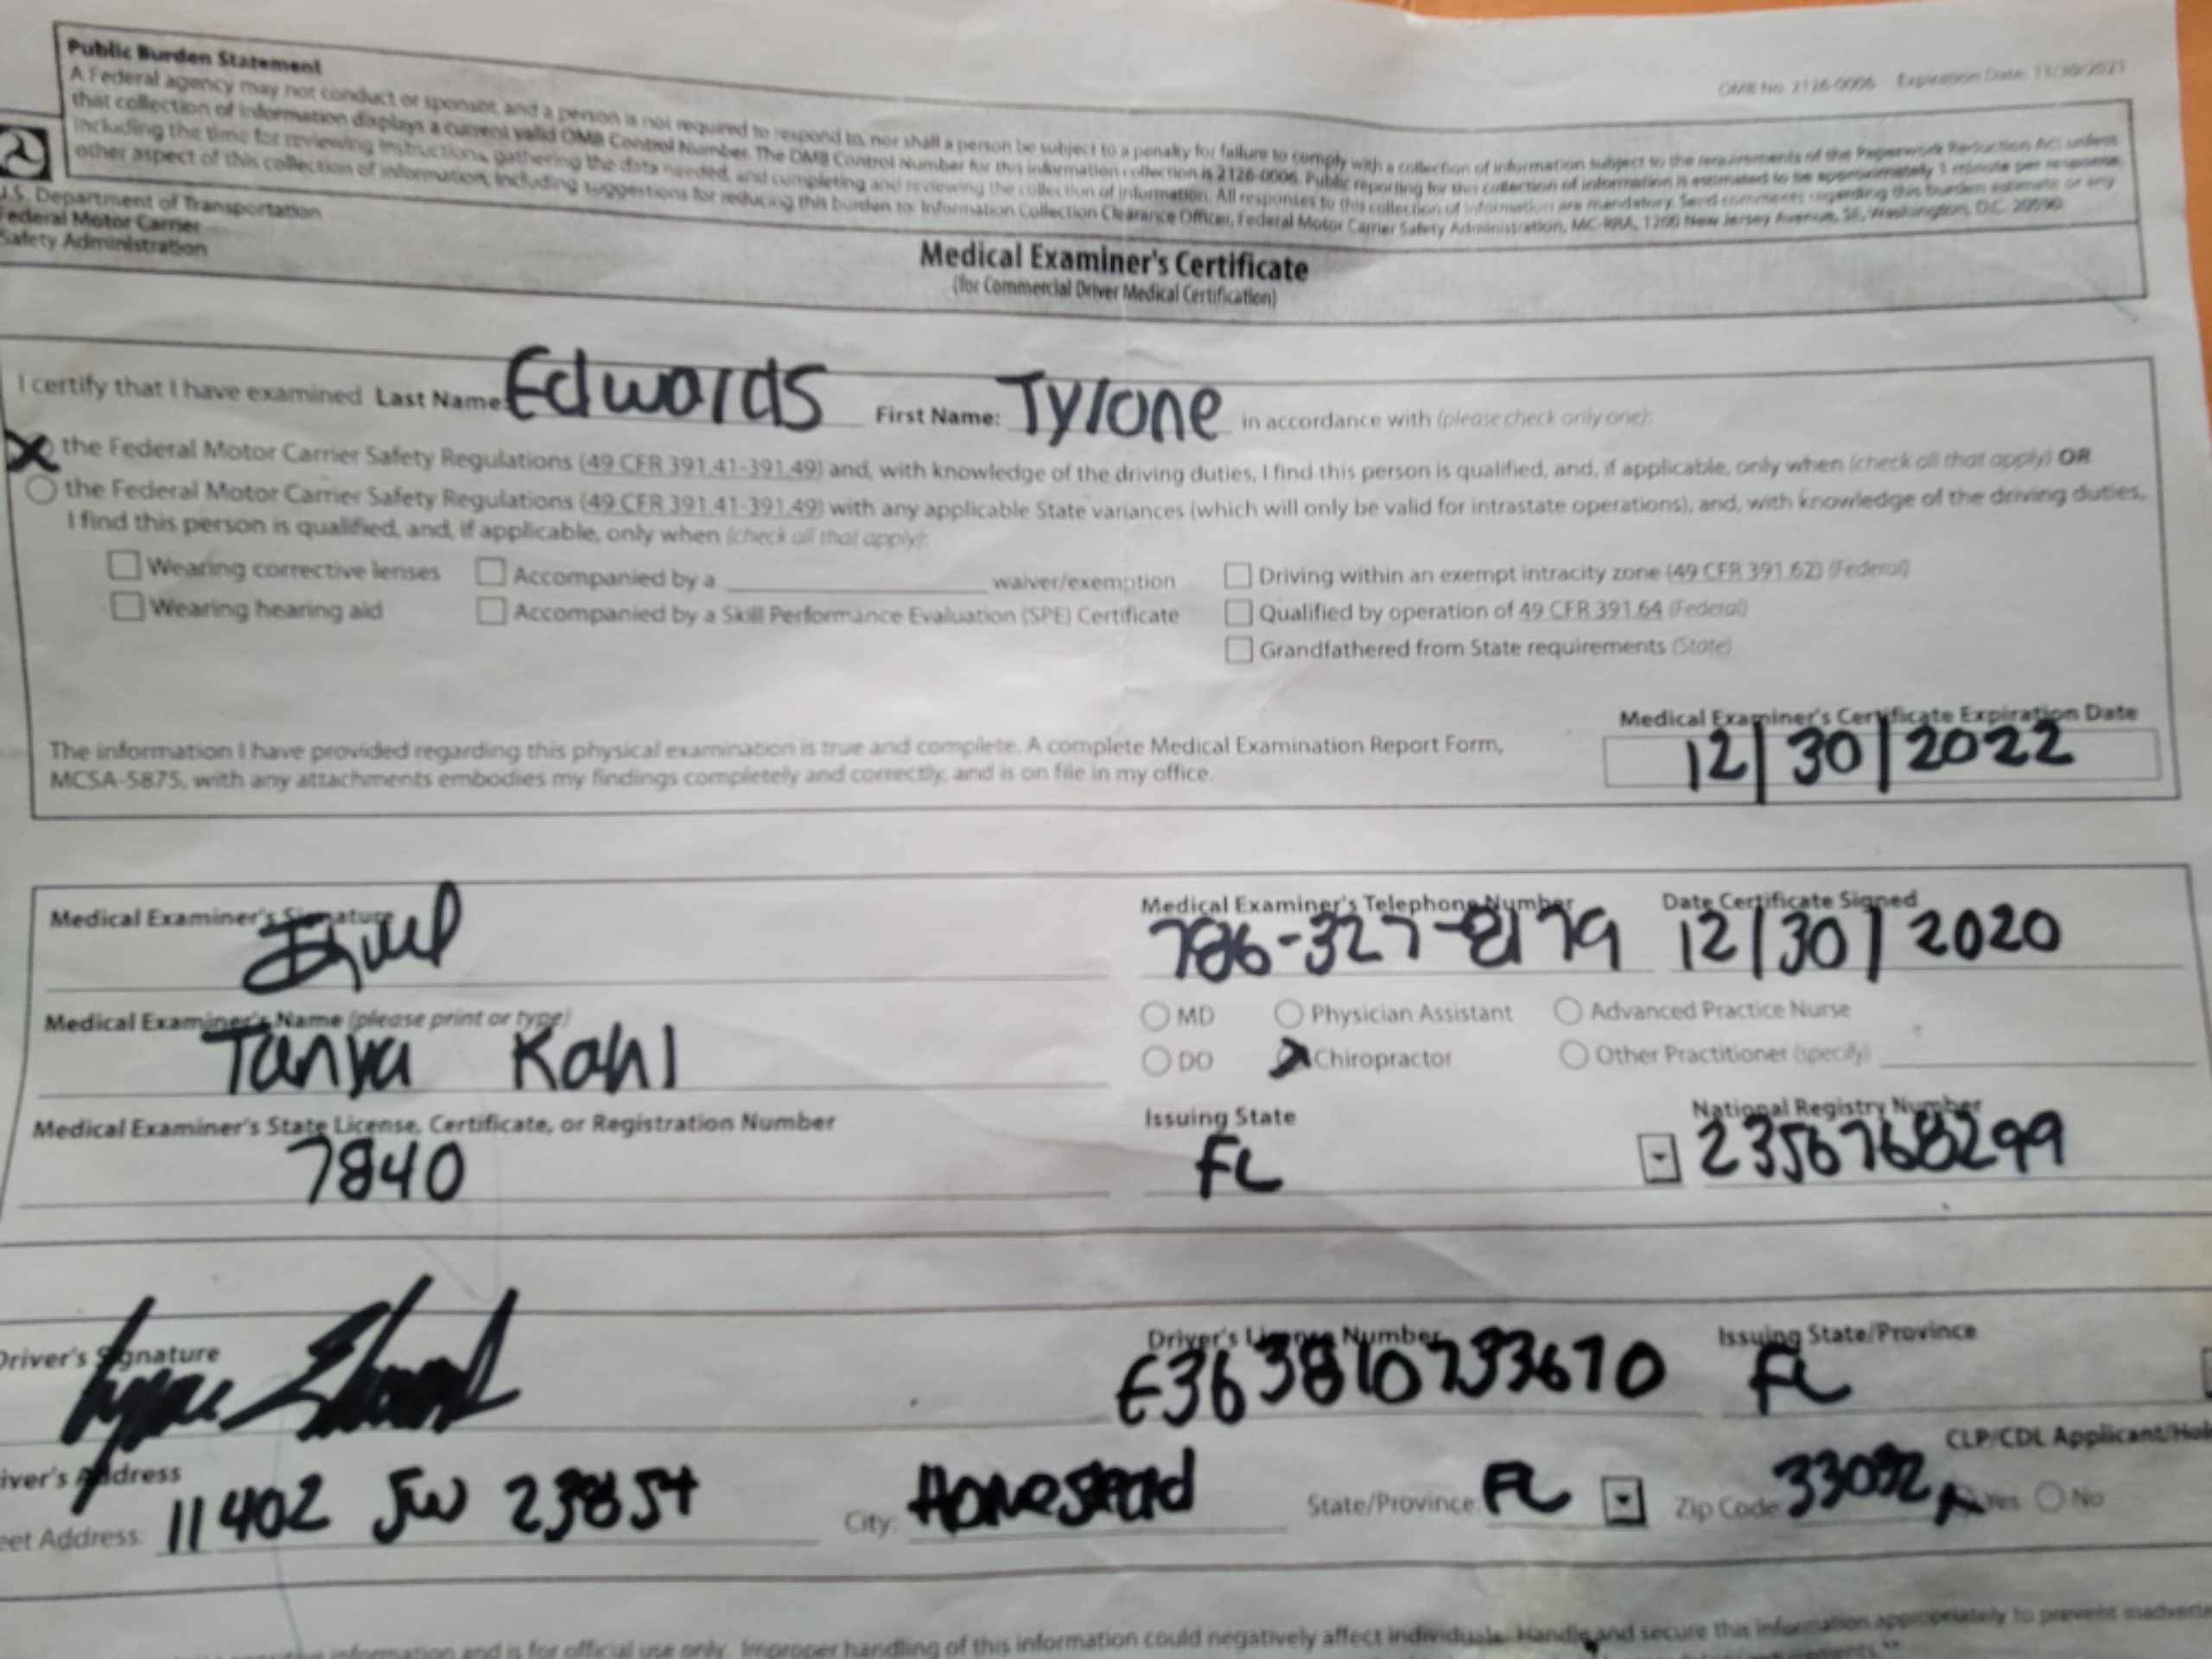 OMB No. 2126-0006 Expiration Date: 11/30/2021
Public Burden Statement
A Federal agency may not conduct or sponsor, and a person is not required to respond to, nor shall a person be subject to a penalty for failure to comply with a collection of information subject to the requirements of the Paperwork Reduction Act unless
that collection of information displays a current valid OMB Control Number. The OMB Control Number for this information collection is 2126-0006. Public reporting for this collection of information is estimated to be approximately 1 minute per response,
including the time for reviewing instructions, gathering the data needed, and completing and reviewing the collection of information. All responses to this collection of information are mandatory. Send comments regarding this burden estimate or any
other aspect of this collection of information, including suggestions for reducing this burden to: Information Collection Clearance Officer, Federal Motor Carrier Safety Administration, MC-RRA, 1200 New Jersey Avenue, SE, Washington, D.C. 20590.
U.S. Department of Transportation
Federal Motor Carrier
Safety Administration
Medical Examiner's Certificate
(for Commercial Driver Medical Certification)
I certify that I have examined Last Name: Edwards First Name: Tyrone in accordance with (please check only one):
the Federal Motor Carrier Safety Regulations (49 CFR 391.41-391.49) and, with knowledge of the driving duties, I find this person is qualified, and, if applicable, only when (check all that apply) OR
the Federal Motor Carrier Safety Regulations (49 CFR 391.41-391.49) with any applicable State variances (which will only be valid for intrastate operations), and, with knowledge of the driving duties,
I find this person is qualified, and, if applicable, only when (check all that apply):
Wearing corrective lenses Accompanied by a waiver/exemption Driving within an exempt intracity zone (49 CFR 391.62) (Federal)
Wearing hearing aid Accompanied by a Skill Performance Evaluation (SPE) Certificate Qualified by operation of 49 CFR 391.64 (Federal)
Grandfathered from State requirements (State)
Medical Examiner's Certificate Expiration Date
The information I have provided regarding this physical examination is true and complete. A complete Medical Examination Report Form,
MCSA-5875, with any attachments embodies my findings completely and correctly, and is on file in my office.
12/30/2022
Medical Examiner's Signature Medical Examiner's Telephone Number Date Certificate Signed
786-327-8179 12/30/2020
MD Physician Assistant Advanced Practice Nurse
Medical Examiner's Name (please print or type)
Tanya Kahl
DO Chiropractor Other Practitioner (specify)
Medical Examiner's State License, Certificate, or Registration Number Issuing State National Registry Number
7840 FL 2356768299
Driver's Signature Driver's License Number Issuing State/Province
E363810733670 FL
Driver's Address CLP/CDL Applicant/Hol
Street Address: 11402 SW 238 St City: Homestead State/Province: FL Zip Code: 33032 Yes No
information and is for official use only. Improper handling of this information could negatively affect individuals. Handle and secure this information appropriately to prevent inadverte